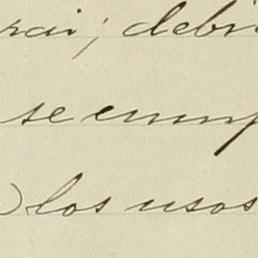 rai; debi
se cump
los usos